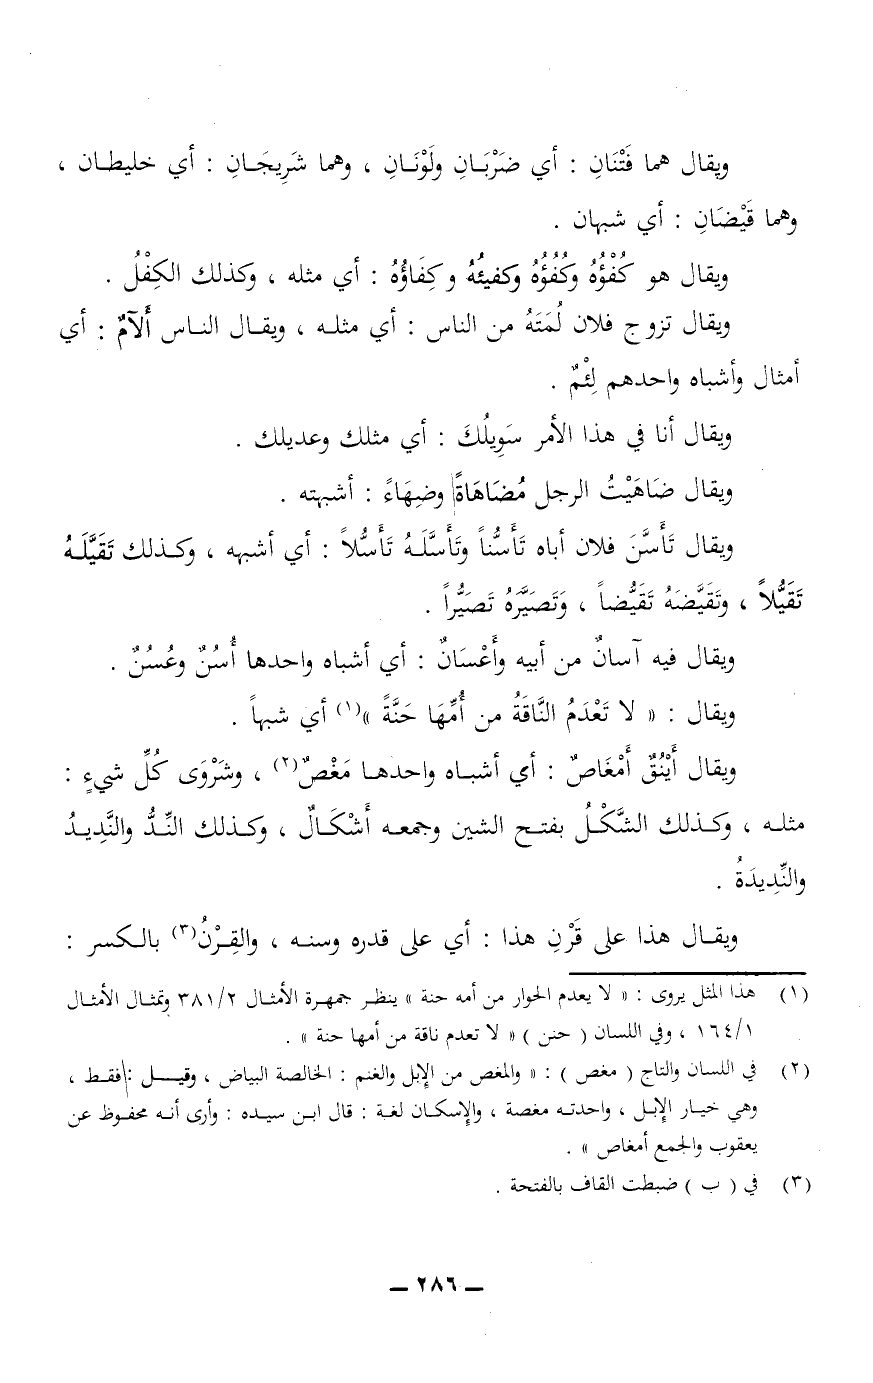 ويقال هما فَتْنَانِ : أي ضَرْبَـانِ ولَوْنَـانِ ، وهما شَرِيجَـانِ : أي خليطـان ،
وهما قَيْضَانِ : أي شبهان .
ويقال هو كُفْؤُهُ وكُفُؤُهُ وكفيئُهُ وكِفَاؤُهُ : أي مثله ، وكذلك الكِفْلُ .
ويقال تزوج فلان لُمَتَهُ من الناس : أي مثلـه ، ويقـال النـاس أَلآمٌ : أي
أمثال وأشباه واحدهم لِئْمٌ .
ويقال أنا في هذا الأمر سَوِيلُكَ : أي مثلك وعديلك .
ويقال ضَاهَيْتُ الرجل مُضَاهَاةً وضِهَاءً : أشبهته .
ويقال تَأَسَّنَ فلان أباه تَأَسُّناً وتَأَسَّلَـهُ تَأَسُّلاً : أي أشبهه ، وكـذلك تَقَيَّلَـهُ
تَقَيُّلاً ، وتَقَيَّضَهُ تَقَيُّضاً ، وَتَصَيَّرَهُ تَصَيُّراً .
ويقال فيه آسانٌ من أبيه وأَعْسَانٌ : أي أشباه واحدها أُسُنٌ وعُسُنٌ .
ويقال : « لا تَعْدَمُ النَّاقَةُ من أُمِّهَا حَنَّةً »(١) أي شبهاً .
ويقال أَيْنُقٌ أَمْغَاصٌ : أي أشبـاه واحدهـا مَغْصٌ(٢) ، وشَرْوَى كُلِّ شيءٍ :
مثلـه ، وكـذلك الشَّكْـلُ بفتـح الشين وجمعـه أَشْكَـالٌ ، وكـذلك النِّـدُّ والنَّدِيـدُ
والنِّدِيدَةُ .
ويقـال هذا على قَرْنِ هذا : أي على قدره وسنـه ، والقِرْنُ(٣) بالـكسر :
(١) هذا المثل يروى : « لا يعدم الحوار من أمه حنة » ينظـر جمهـرة الأمثـال ٣٨١/٢ وتمثـال الأمثـال
١٦٤/١ ، وفي اللسان ( حنن ) « لا تعدم ناقة من أمها حنة » .
(٢) في اللسان والتاج ( مغص ) : « والمغص من الإبل والغنم : الخالصة البياض ، وقيـــل : فقـط ،
وهي خيـار الإبـل ، واحدتـه مغصة ، والإسكـان لغـة : قال ابـن سيـده : وأرى أنـه محفـوظ عن
يعقوب والجمع أمغاص » .
(٣) في ( ب ) ضبطت القاف بالفتحة .
ــ ٢٨٦ ــ